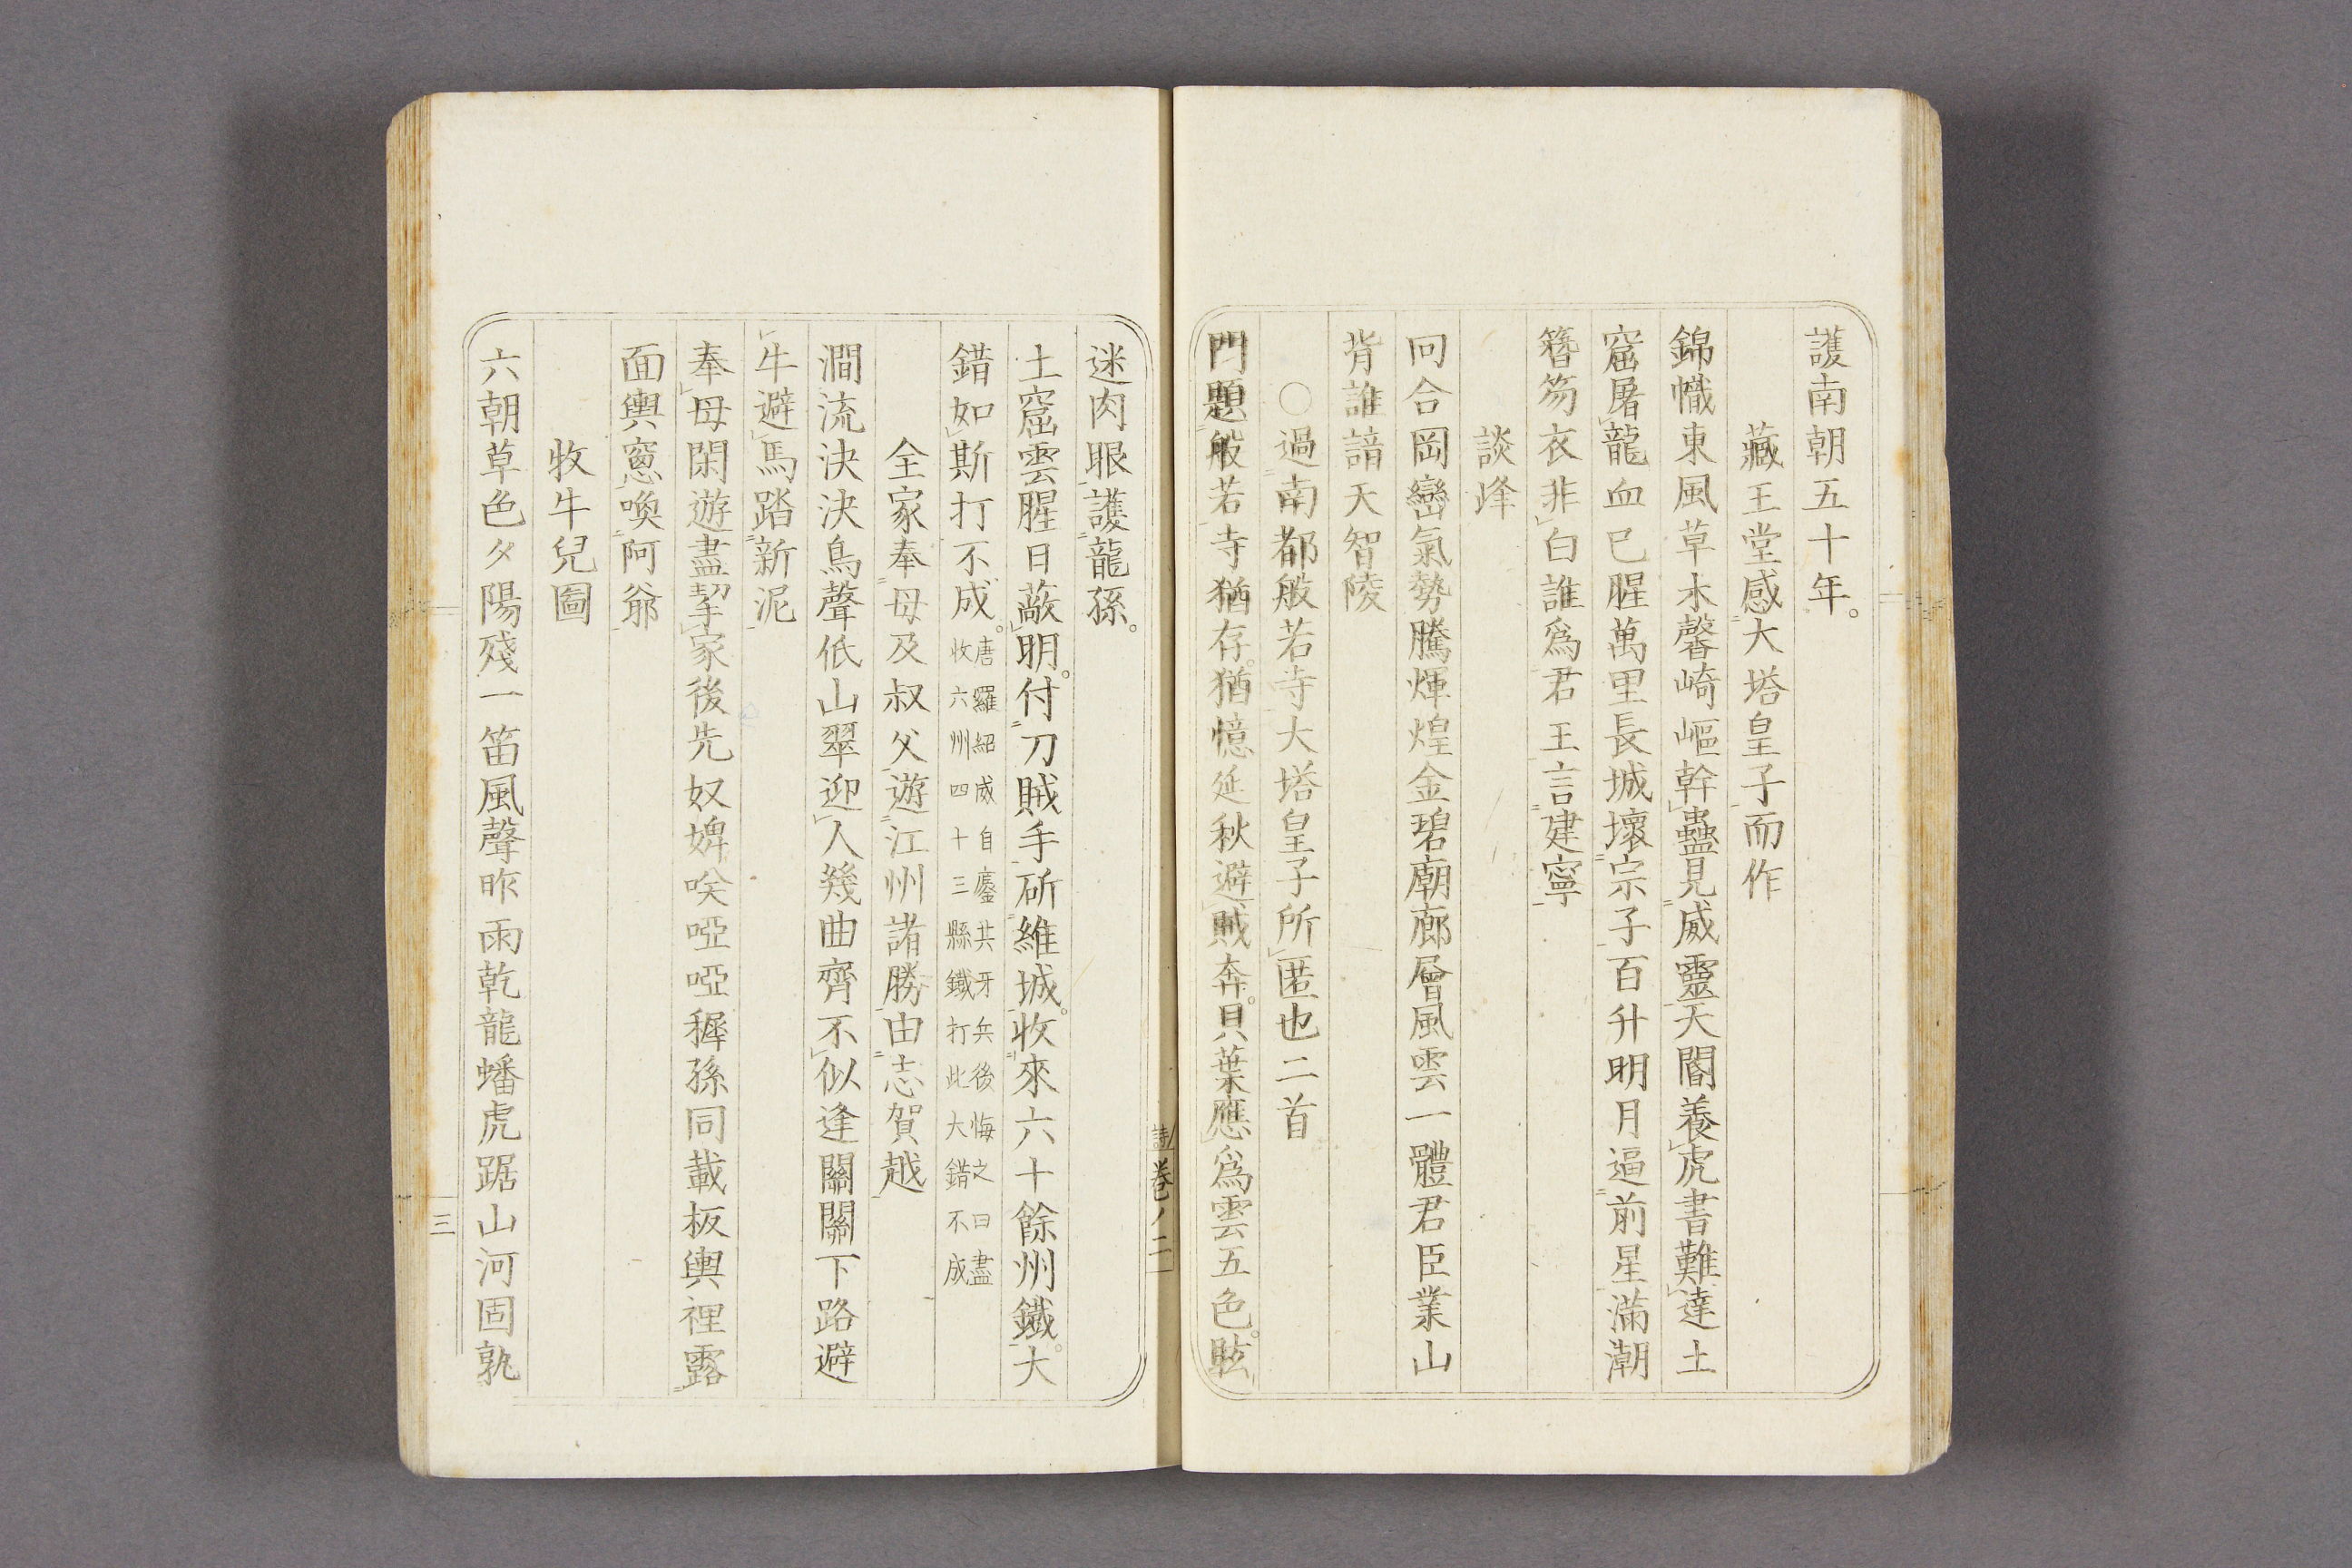 護南朝五十年。
藏王堂感大塔皇子而作
錦幟東風草木馨崎嶇幹蠱見威靈天閽養虎書難達土
窟屠龍血已腥萬里長城壞宗子百升明月逼前星滿潮
簪笏衣非白誰爲君王言建寧
談峰
回合岡巒氣勢騰煇煌金碧廟廊層風雲一體君臣業山
背誰諳天智陵
○過南都般若寺大塔皇子所匿也二首
門題般若寺猶存。猶憶延秋避賊奔。貝葉應爲雲五色。眩
迷肉眼護龍孫。
土窟雲腥日蔽明。付刀賊手斫維城。收來六十餘州鐵。大
錯如斯打不成。唐羅紹威自鏖其牙兵後悔之曰盡
收六州四十三縣鐵打此大錯不成
全家奉母及叔父遊江州諸勝由志賀越
澗流決決鳥聲低山翠迎人幾曲齊不似逢關關下路避
牛避馬踏新泥
奉母閑遊盡挈家後先奴婢唉啞啞穉孫同載板輿裡露
面輿窻喚阿爺
牧牛兒圖
六朝草色夕陽殘一笛風聲昨雨乾龍蟠虎踞山河固孰
詩
卷ノ二
三